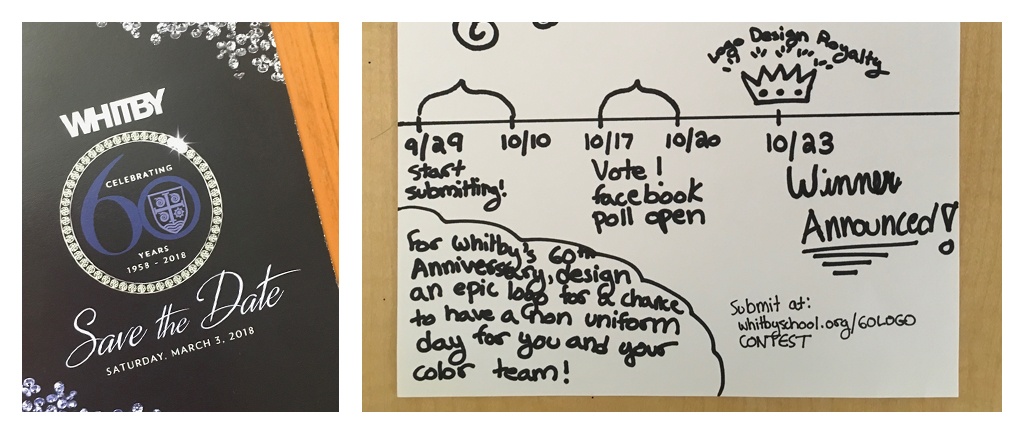 WHITBY
CELEBRATING
60
YEARS
1958 - 2018
Save the Date
SATURDAY, MARCH 3, 2018
Logo Design Royalty
9/29
10/10
10/17
10/20
10/23
Start
submitting!
Vote!
facebook
poll open
Winner
Announced!
For Whitby's 60th
Anniversary, design
an epic logo for a chance
to have a non uniform
day for you and your
color team!
Submit at:
whitbyschool.org/60LOGO
CONTEST